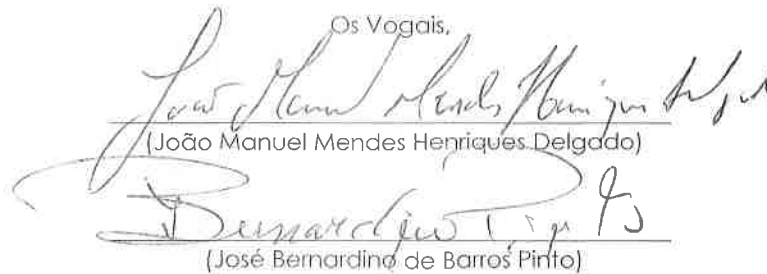 Os Vogais,
João Manuel Mendes Henriques Delgado
(João Manuel Mendes Henriques Delgado)
Bernardino Pinto
(José Bernardino de Barros Pinto)